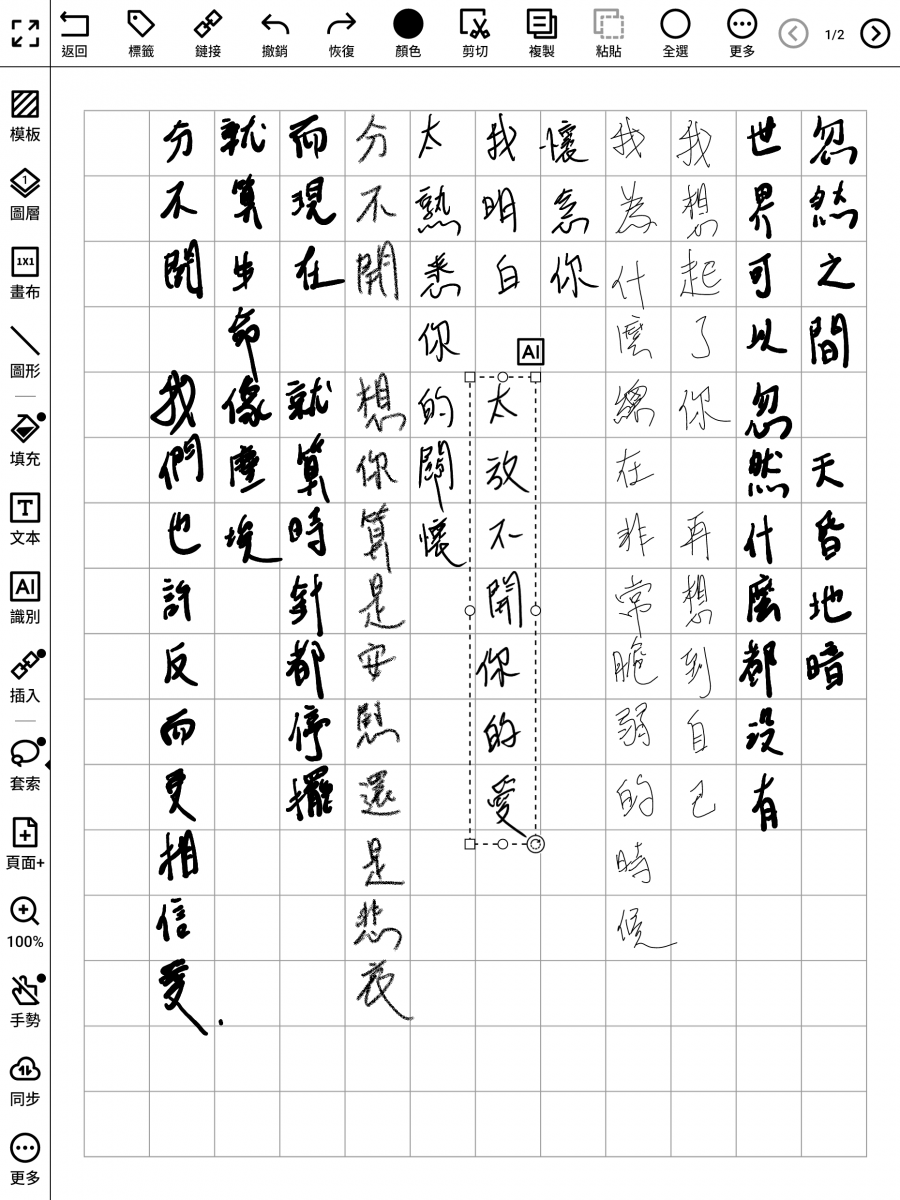 返回
標籤
鏈接
撤銷
恢復
顏色
剪切
複製
粘貼
全選
更多
1/2
模板
1
圖層
1X1
畫布
圖形
填充
T
文本
AI
識別
插入
套索
頁面+
100%
手勢
同步
更多
忽然之間 天昏地暗
世界可以忽然什麼都沒有
我想起了你 再想到自己
我為什麼總在非常脆弱的時候
懷念你
我明白 太放不開你的愛
AI
太熟悉你的關懷
分不開 想你算是安慰還是悲哀
而現在 就算時針都停擺
就算生命像塵埃
分不開 我們也許反而更相信愛.